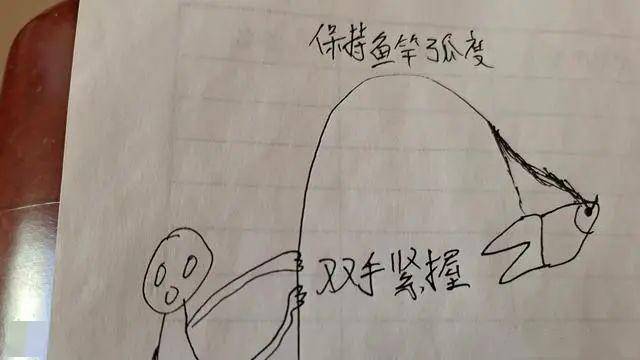 保持鱼竿弧度
双手紧握